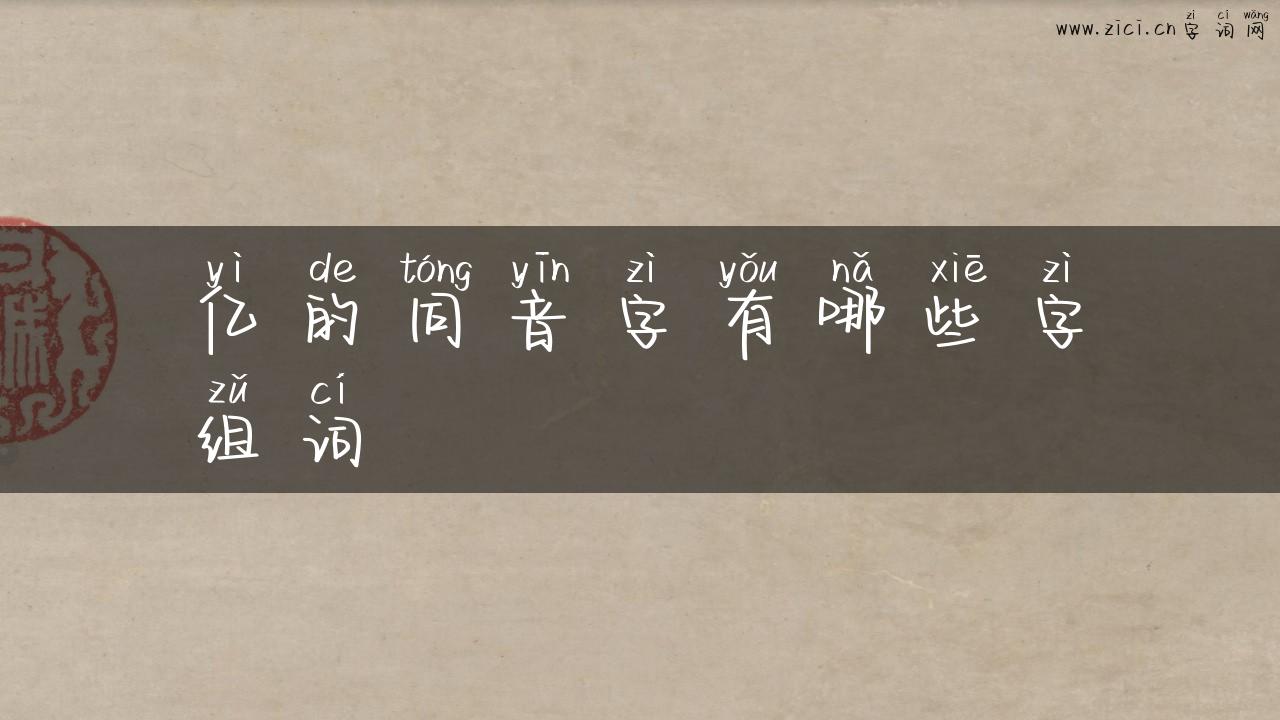 zì cí wǎng
www.zici.cn 字词网
yì de tóng yīn zì yǒu nǎ xiē zì
亿的同音字有哪些字
zǔ cí
组词